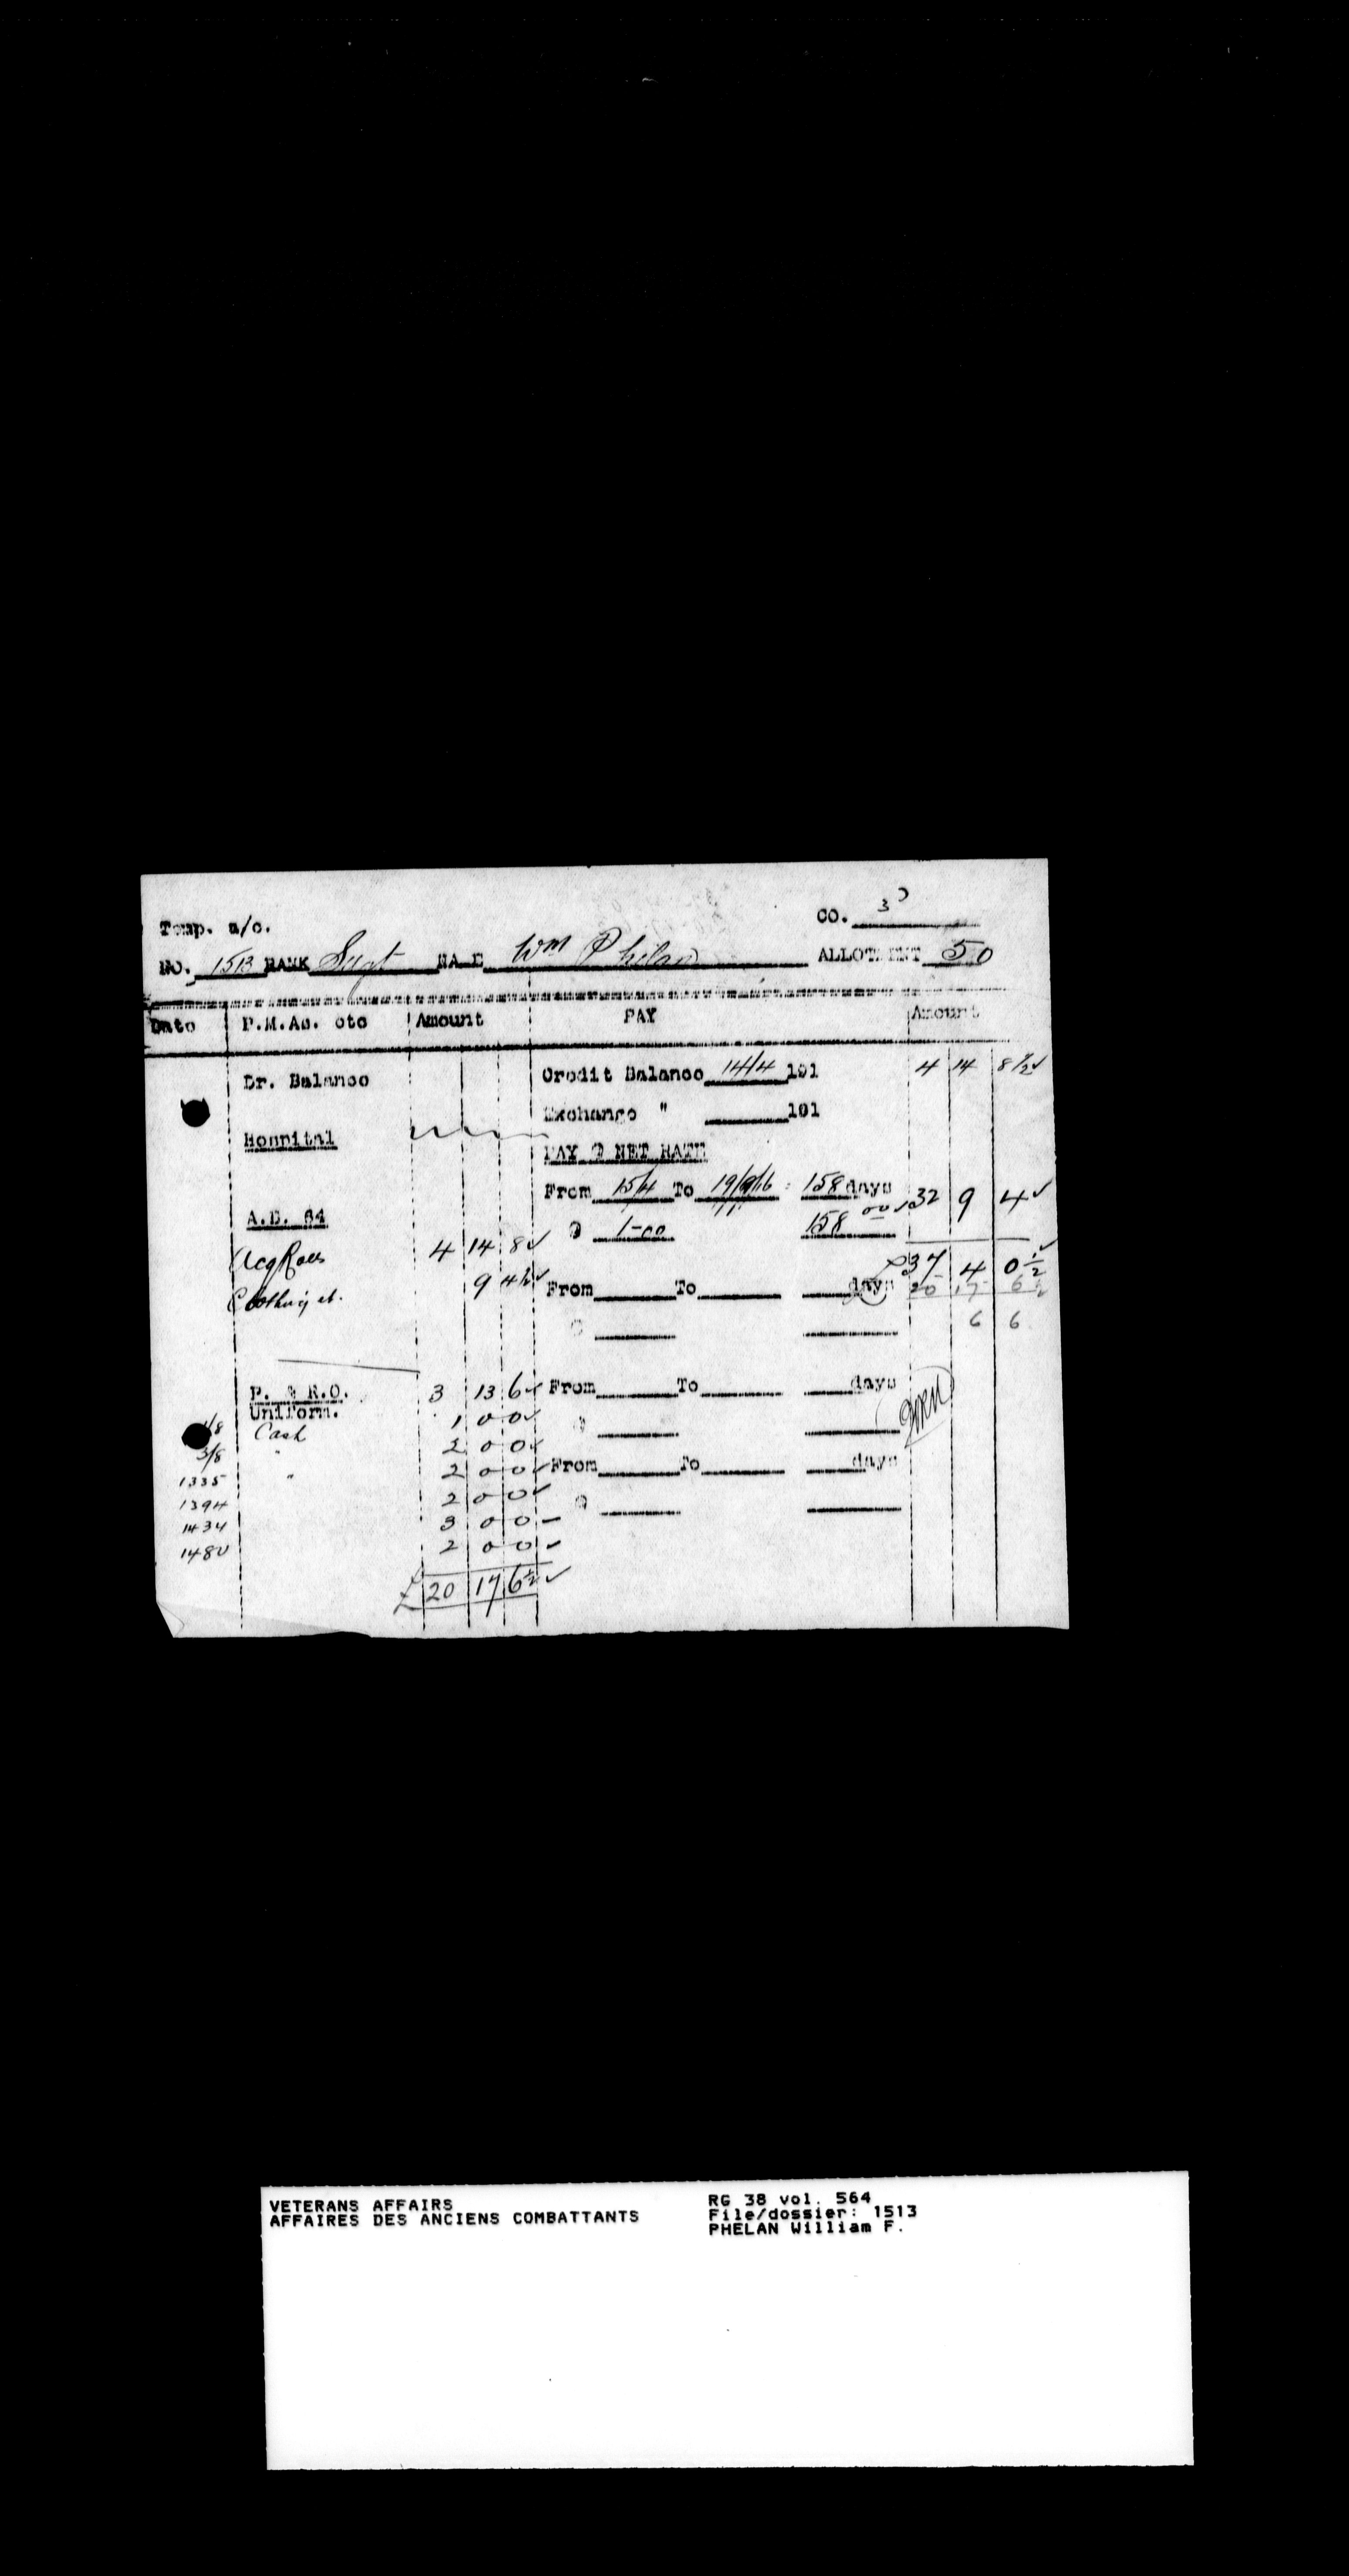 Temp. a/c. CO. 3
NO. 1513 RANK Sergt NAME Wm Phelan ALLOTMENT 50
Date P.M.As. etc Amount PAY Amount
Dr. Balance Credit Balance 14/4 191 4 14 8 1/2 ✓
Exchange " 191
Hospital
PAY @ NET RATE
From 15/4 To 19/9/16 : 158 days 32 9 4 ✓
A.D. 64 @ 1-00 158 00 ✓
Acq Rolls 4 14 8 ✓ £37 4 0 1/2 ✓
Clothing et. 9 4 1/2 ✓ From To days 20 17 6 1/2
@ 6 6
P. & R.O. 3 13 6 ✓ From To days
Uniform. 1 0 0 ✓ @
/8 Cash 2 0 0 ✓
3/8 " 2 0 0 ✓ From To days
1335 " 2 0 0 ✓ @
1394 3 0 0 -
1434 2 0 0 -
1480
£ 20 17 6 1/2 ✓
VETERANS AFFAIRS RG 38 vol. 564
AFFAIRES DES ANCIENS COMBATTANTS File/dossier: 1513
PHELAN William F.